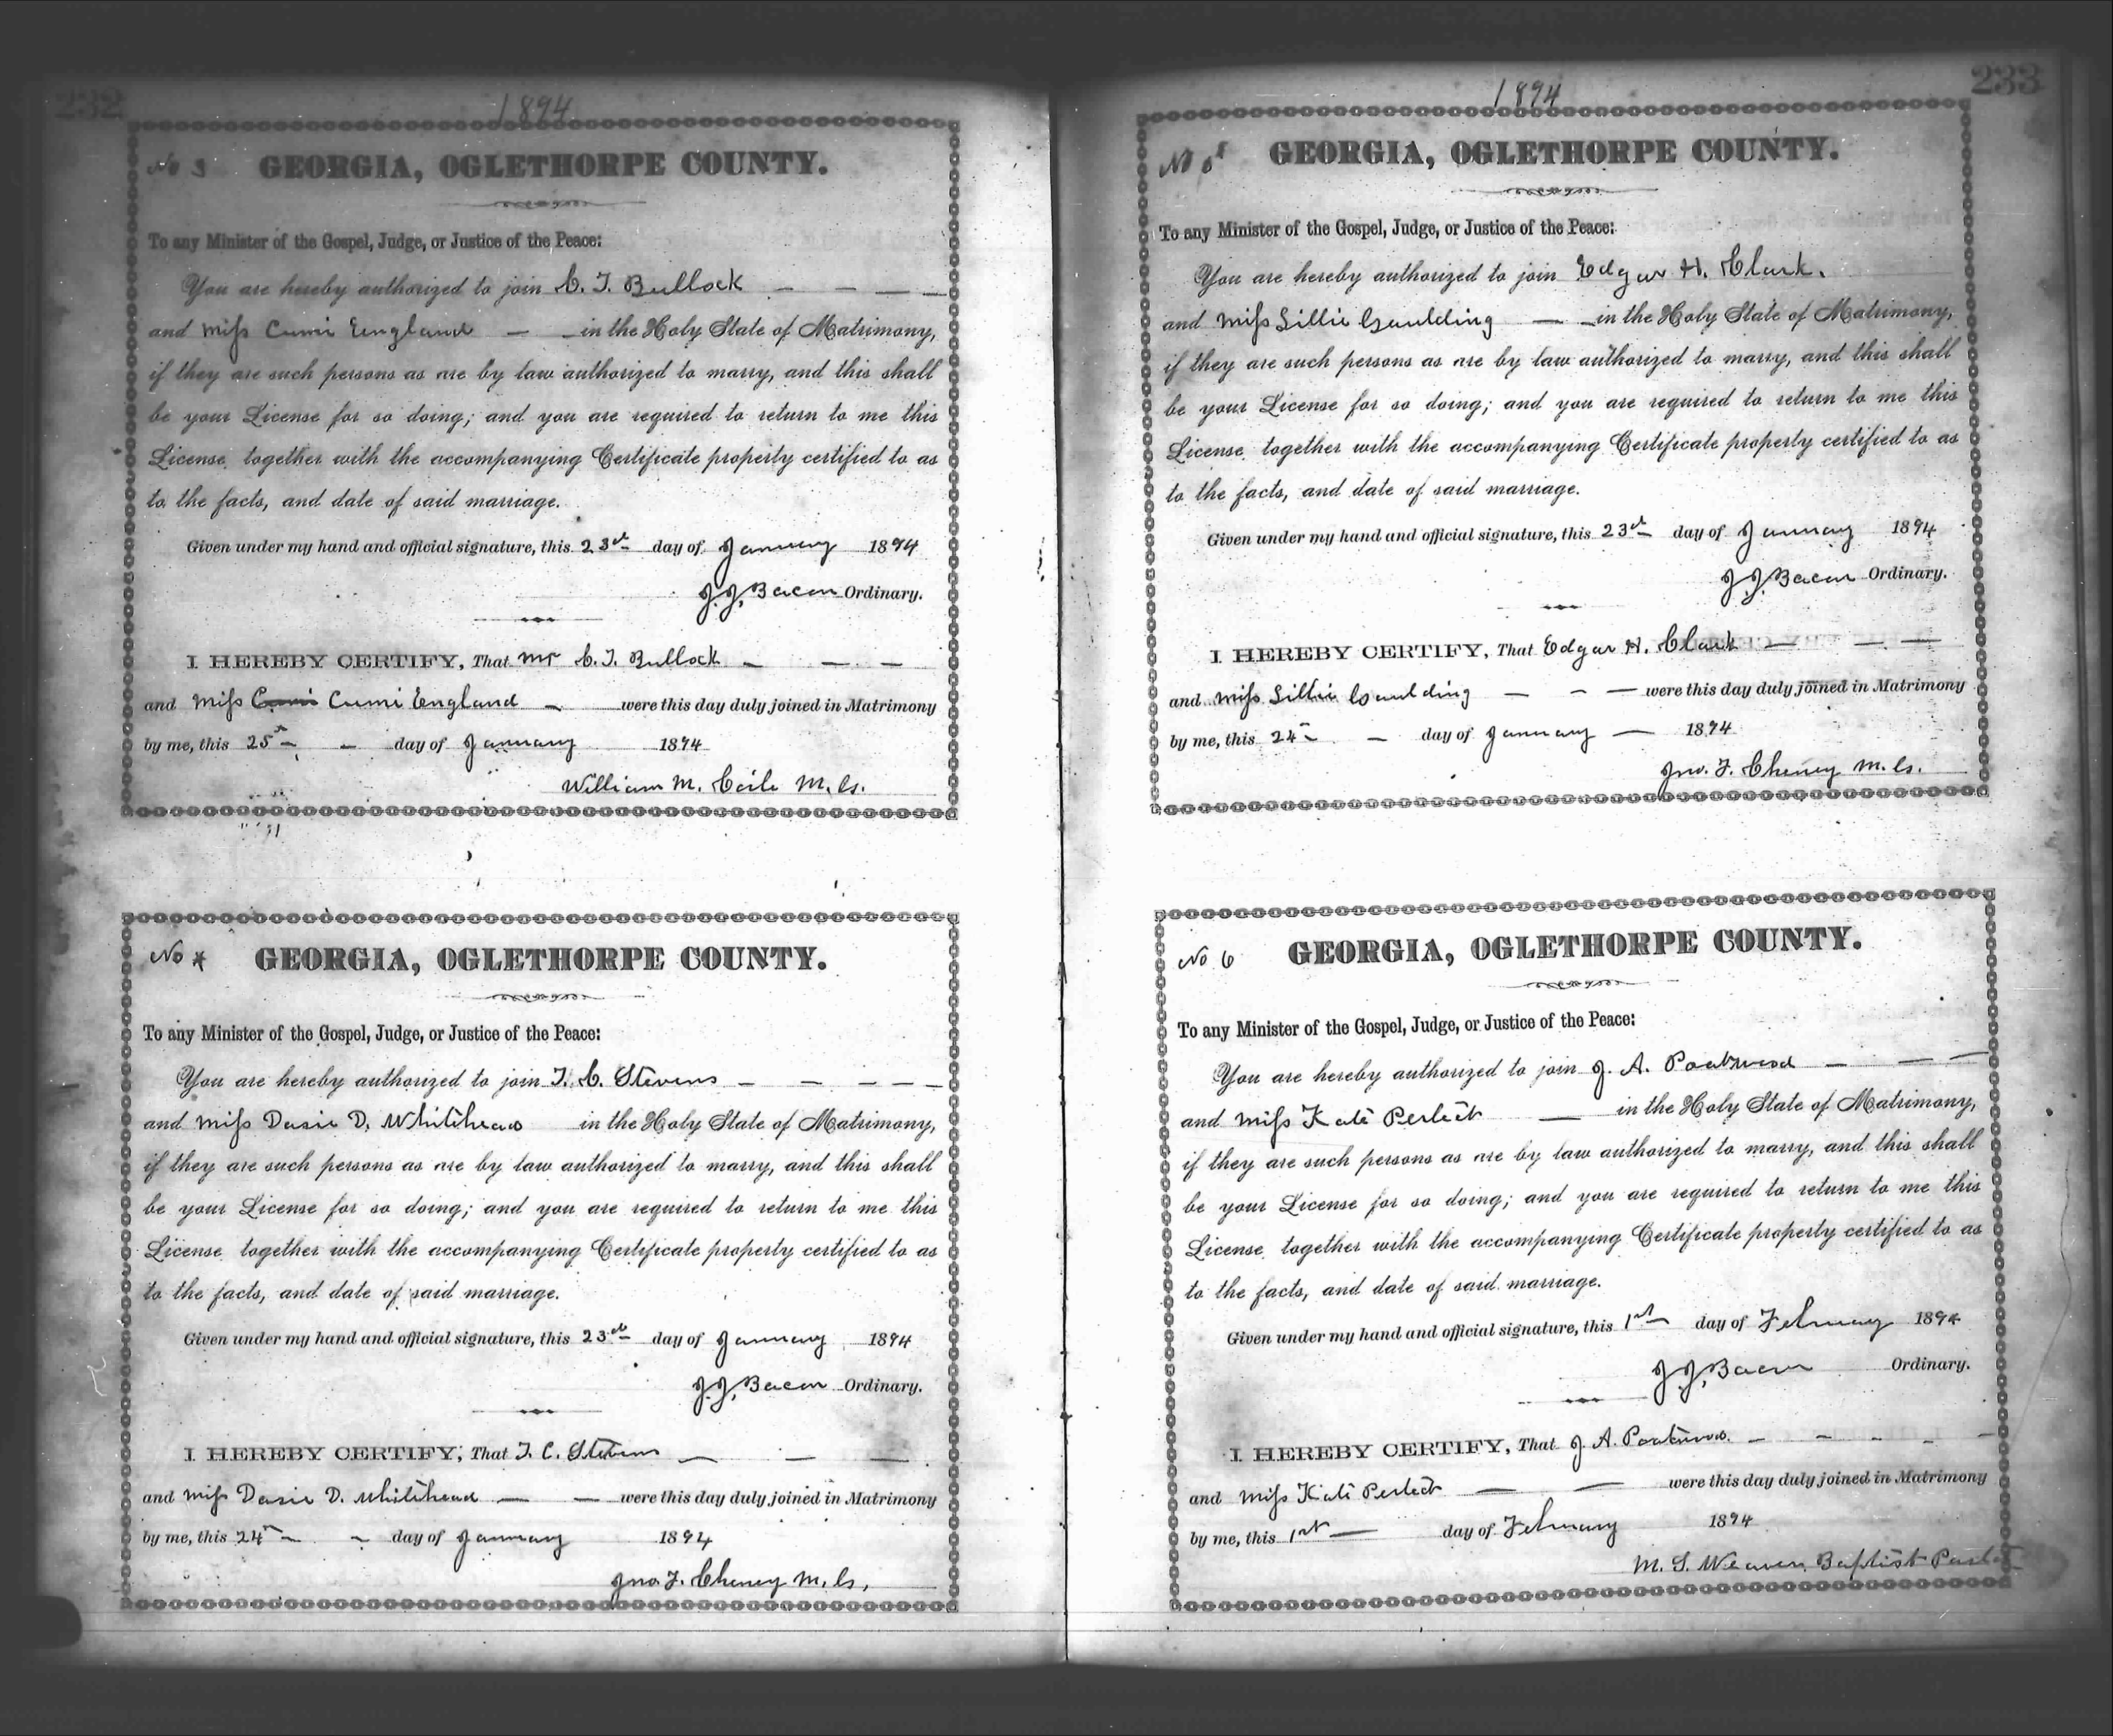 232
1894
No 3 GEORGIA, OGLETHORPE COUNTY.
To any Minister of the Gospel, Judge, or Justice of the Peace:
You are hereby authorized to join C. T. Bullock
and Miss Cumi England in the Holy State of Matrimony,
if they are such persons as are by law authorized to marry, and this shall
be your License for so doing; and you are required to return to me this
License together with the accompanying Certificate property certified to as
to the facts, and date of said marriage.
Given under my hand and official signature, this 23rd day of January 1894
J. J. Bacon Ordinary.
I HEREBY CERTIFY, That Mr C. T. Bullock
and Miss Cumi England were this day duly joined in Matrimony
by me, this 25th day of January 1894
William M. Coile M. G.
No 4 GEORGIA, OGLETHORPE COUNTY.
To any Minister of the Gospel, Judge, or Justice of the Peace:
You are hereby authorized to join T. C. Stevens
and Miss Dasie D. Whitehead in the Holy State of Matrimony,
if they are such persons as are by law authorized to marry, and this shall
be your License for so doing; and you are required to return to me this
License together with the accompanying Certificate property certified to as
to the facts, and date of said marriage.
Given under my hand and official signature, this 23rd day of January 1894
J. J. Bacon Ordinary.
I HEREBY CERTIFY, That T. C. Stevens
and Miss Dasie D. Whitehead were this day duly joined in Matrimony
by me, this 24th day of January 1894
Jno. T. Cheney M. G.
233
1894
No 5 GEORGIA, OGLETHORPE COUNTY.
To any Minister of the Gospel, Judge, or Justice of the Peace:
You are hereby authorized to join Edgar H. Clark.
and Miss Lillie Gaulding in the Holy State of Matrimony,
if they are such persons as are by law authorized to marry, and this shall
be your License for so doing; and you are required to return to me this
License together with the accompanying Certificate property certified to as
to the facts, and date of said marriage.
Given under my hand and official signature, this 23rd day of January 1894
J. J. Bacon Ordinary.
I HEREBY CERTIFY, That Edgar H. Clark
and Miss Lillie Gaulding were this day duly joined in Matrimony
by me, this 24th day of January 1894
Jno. T. Cheney M. G.
No 6 GEORGIA, OGLETHORPE COUNTY.
To any Minister of the Gospel, Judge, or Justice of the Peace:
You are hereby authorized to join J. A. Poatwood
and Miss Kate Perteet in the Holy State of Matrimony,
if they are such persons as are by law authorized to marry, and this shall
be your License for so doing; and you are required to return to me this
License together with the accompanying Certificate property certified to as
to the facts, and date of said marriage.
Given under my hand and official signature, this 1st day of February 1894
J. J. Bacon Ordinary.
I HEREBY CERTIFY, That J. A.
and Miss Kate Perteet were this day duly joined in Matrimony
by me, this 1st day of February 1894
M. S. Weaver Baptist Pastor